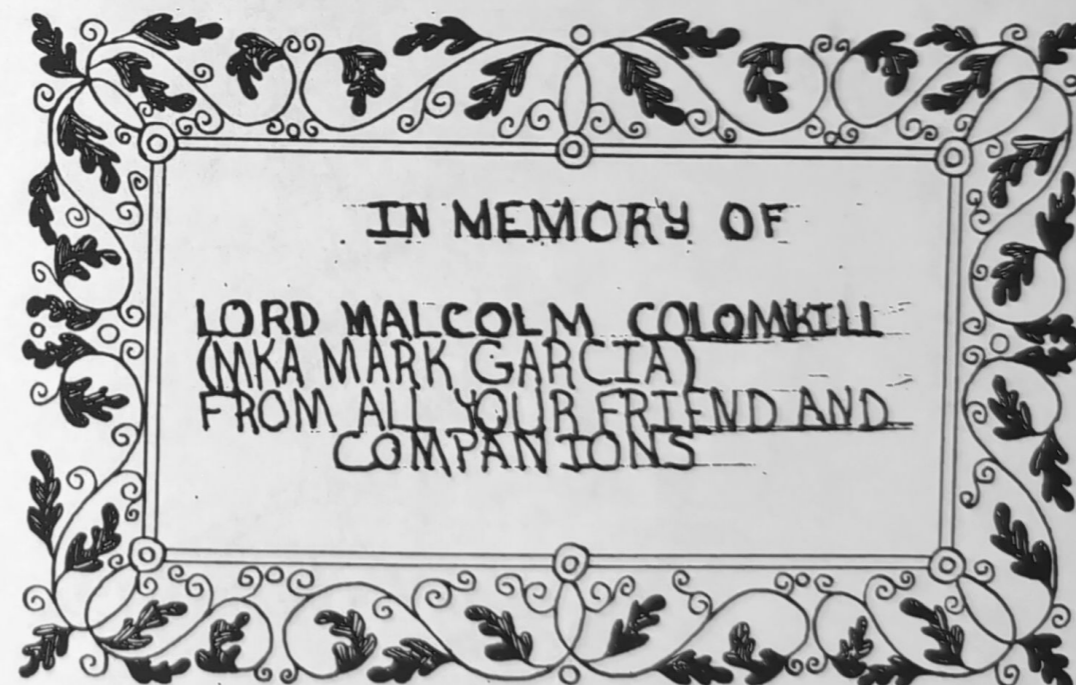 IN MEMORY OF
LORD MALCOLM COLOMKILL
(MKA MARK GARCIA)
FROM ALL YOUR FRIEND AND
COMPANIONS